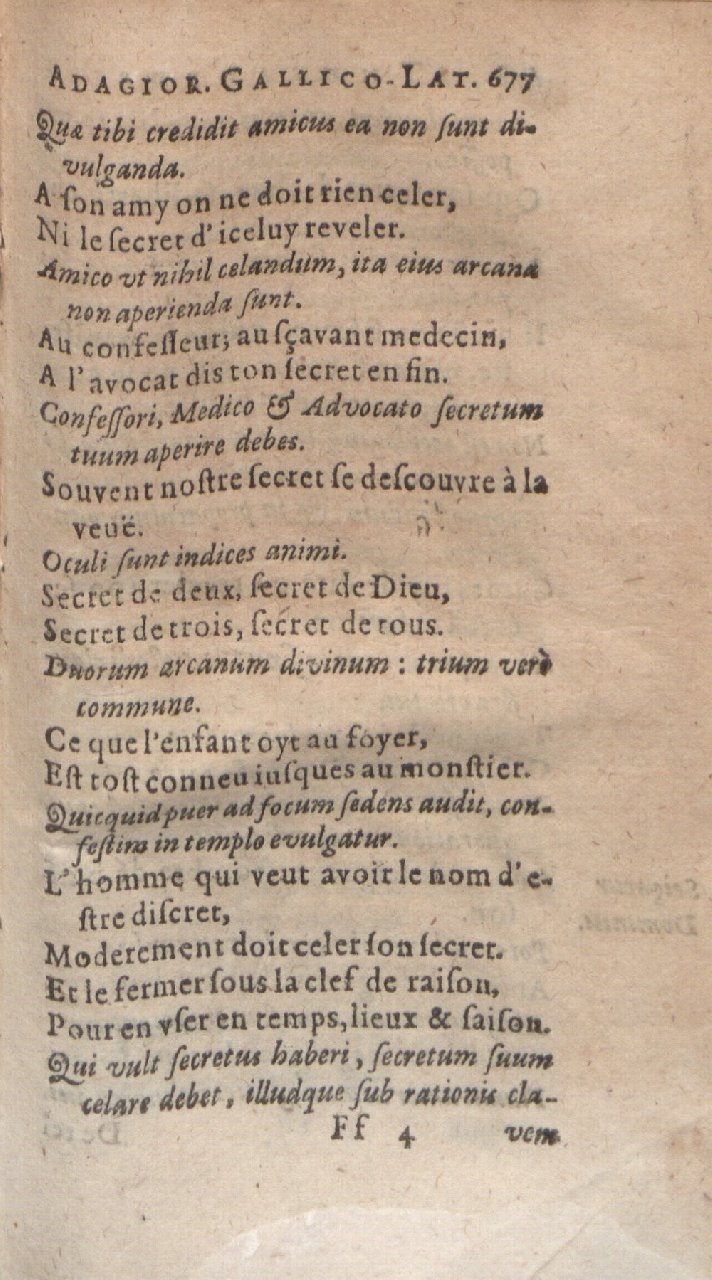 ADAGIOR. GALLICO-LAT. 677
Quæ tibi credidit amicus ea non ſunt di-
vulganda.
A ſon amy on ne doit rien celer,
Ni le ſecret d'iceluy reveler.
Amico vt nihil celandum, ita eius arcana
non aperienda ſunt.
Au confeſſeur, au ſçavant medecin,
A l'avocat dis ton ſecret en fin.
Confeſſori, Medico & Advocato ſecretum
tuum aperire debes.
Souvent noſtre ſecret ſe deſcouvre à la
veuë.
Oculi ſunt indices animi.
Secret de deux, ſecret de Dieu,
Secret de trois, ſecret de tous.
Duorum arcanum divinum : trium verò
commune.
Ce que l'enfant oyt au foyer,
Eſt toſt conneu iuſques au monſtier.
Quicquid puer ad focum ſedens audit, con-
feſtim in templo evulgatur.
L'homme qui veut avoir le nom d'e-
ſtre diſcret,
Moderement doit celer ſon ſecret.
Et le fermer ſous la clef de raiſon,
Pour en vſer en temps, lieux & ſaiſon.
Qui vult ſecretus haberi, ſecretum ſuum
celare debet, illudque ſub rationis cla-
Ff 4 vem